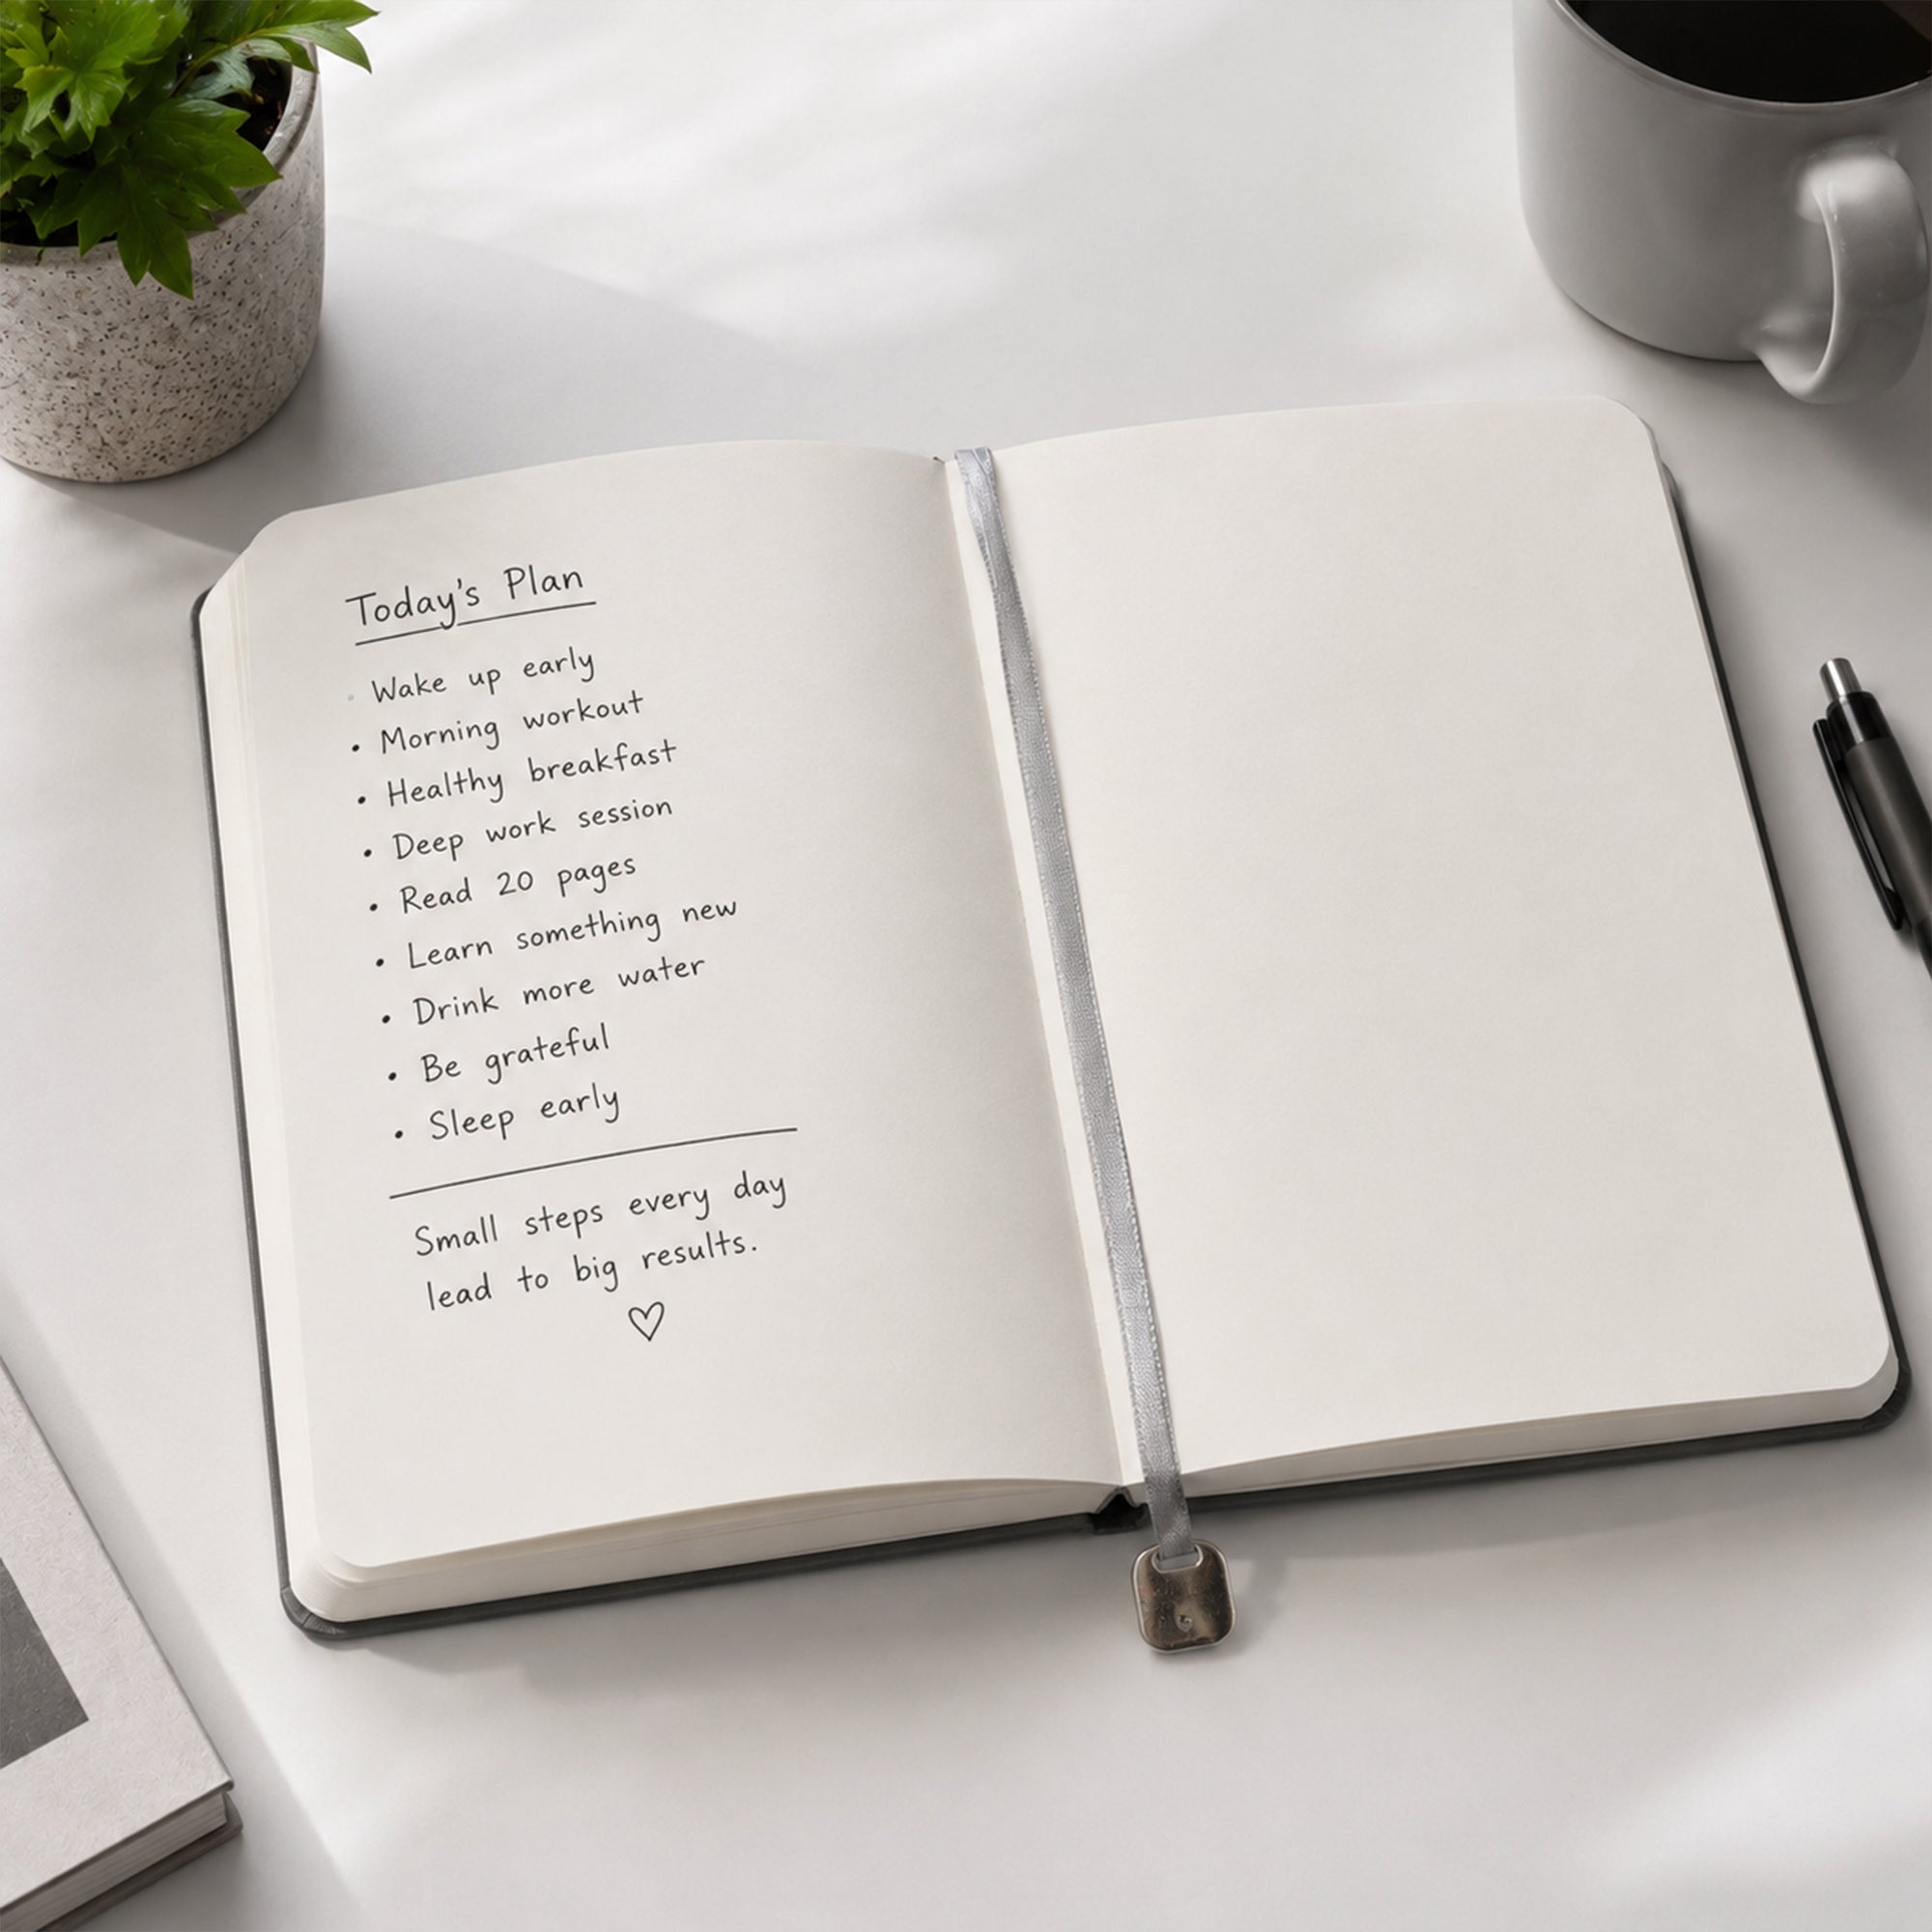 Today's Plan
• Wake up early
• Morning workout
• Healthy breakfast
• Deep work session
• Read 20 pages
• Learn something new
• Drink more water
• Be grateful
• Sleep early
Small steps every day
lead to big results.
♡